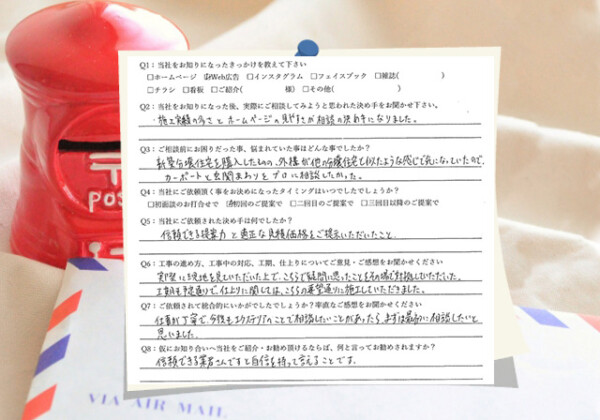 Q1：当社をお知りになったきっかけを教えて下さい
□ホームページ ☑Web広告 □インスタグラム □フェイスブック □雑誌( )
□チラシ □看板 □ご紹介( 様) □その他( )
Q2：当社をお知りになった後、実際にご相談してみようと思われた決め手をお聞かせ下さい。
・施工実績の多さとホームページの見やすさが相談の決め手になりました。
Q3：ご相談前にお困りだった事、悩まれていた事はどんな事でしたか？
新築分譲住宅を購入したものの、外構が他の分譲住宅とも似たような感じで気になっていたので、
カーポートと玄関まわりをプロに相談したかった。
Q4：当社にご依頼頂く事をお決めになったタイミングはいつでしたでしょうか？
□初面談のお打合せで ☑初回のご提案で □二回目のご提案で □三回目以降のご提案で
Q5：当社にご依頼された決め手は何でしたか？
信頼できる提案力と適正な見積価格をご提示いただいたこと
Q6：工事の進め方、工事中の対応、工期、仕上りについてご意見・ご感想をお聞かせください
実際に現地を見ていただいた上で、こちらで疑問に思ったこともその場で対応していただいた。
工期も予定通りで、仕上りに関しては、こちらの要望通りに施工していただきました。
Q7：ご依頼されて総合的にいかがでしたでしょうか？率直なご感想をお聞かせください
仕事が丁寧で、今後もエクステリアのことで相談したいことがあったら、まずは最初に相談したいと
思いました。
Q8：仮にお知り合いへ当社をご紹介・お勧め頂けるならば、何と言ってお勧めされますか？
信頼できる業者さんですと自信を持って言えることです。
POS
VIA AIR MAIL